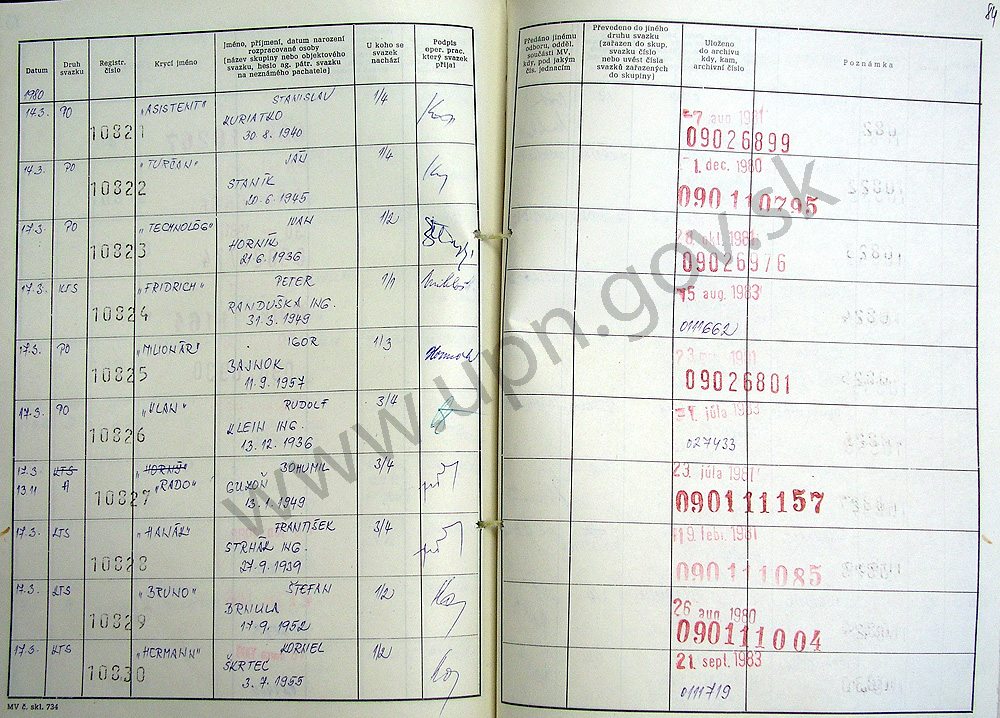 84
Datum
Druh svazku
Registr. číslo
Krycí jméno
Jméno, příjmení, datum narození
rozpracované osoby
(název skupiny nebo objektového
svazku, heslo ag. pátr. svazku
na neznámého pachatele)
U koho se
svazek
nachází
Podpis
oper. prac.
který svazek
přijal
Předáno jinému
odboru, odděl.
součásti MV,
kdy, pod jakým
čís. jednacím
Převedeno do jiného
druhu svazku
(zařazen do skup.
svazku číslo
nebo uvést čísla
svazků zařazených
do skupiny)
Uloženo
do archivu
kdy, kam,
archivní číslo
Poznámka
1980
14.3. PO 10821 "ASISTENT" STANISLAV 1/4
KURIATKO
30.8.1940
7 aug 1981
09026899
14.3. PO 10822 "TURČAN" JÁN 1/4
STANÍK
20.6.1945
1. dec. 1980
090110795
17.3. PO 10823 "TECHNOLÓG" IVAN 1/2
HORNÍK
21.6.1936
28. okt. 1981
09026976
17.3. KTS 10824 "FRIDRICH" PETER 1/1
RANDUŠKA ING.
31.3.1949
15 aug. 1983
0111662
17.3. PO 10825 "MILIONÁR" IGOR 1/3
BAJNOK
11.9.1957
1981
09026801
17.3. PO 10826 "KLAN" RUDOLF 3/4
KLEIN ING.
13.12.1936
júla 1983
027433
17.3. KTS 10827 "HORNÝ" BOHUMIL 3/4
13.11 A "RADO"
13.1.1949
23. júla 1981
090111157
17.3. KTS 10828 FRANTIŠEK 3/4
STRHÁR ING.
27.9.1939
19. febr. 1981
090111085
17.3. KTS 10829 "BRUNO" ŠTEFAN 1/2
BRNULA
17.9.1952
26 aug 1980
090111004
17.3. KTS 10830 "HERMANN" KORNEL 1/2
ŠKRTEC
3.7.1955
21. sept. 1983
0111719
MV č. skl. 734
www.upn.gov.sk